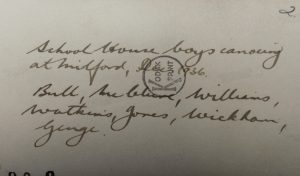 2.
School House boys canoeing
at Milford, Dec 1936.
KODAK
PRINT
Bull, McClure, Williams,
Watkins, Jones, Wickham,
Genge.